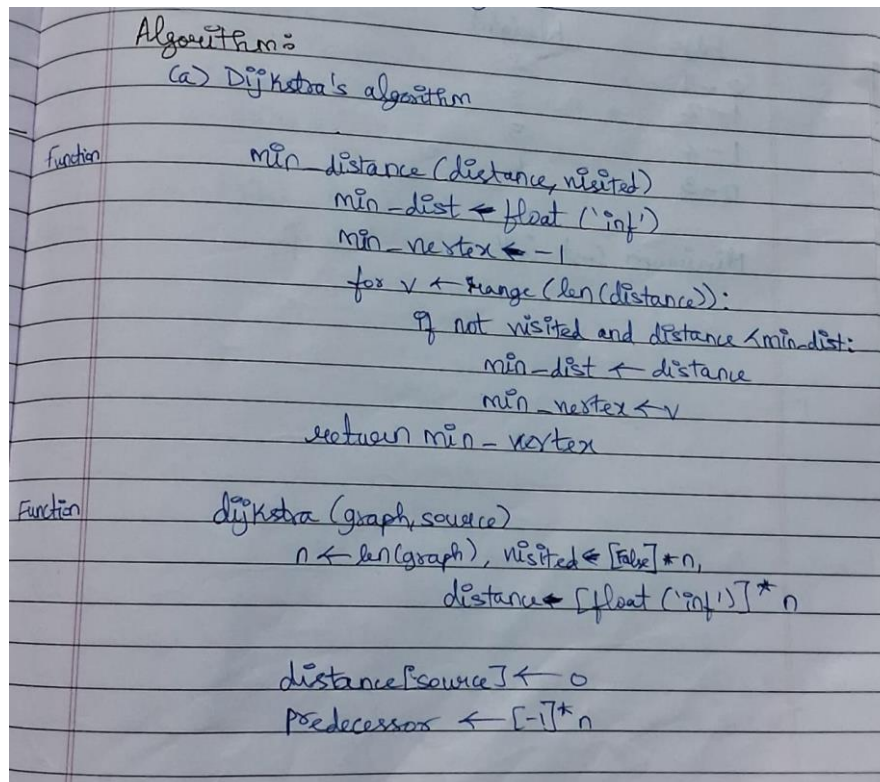 Algorithm:
(a) Dijkstra's algorithm
Function min_distance (distance, visited)
min_dist ← float ('inf')
min_vertex ← -1
for v ← range (len(distance)):
if not visited and distance < min_dist:
min_dist ← distance
min_vertex ← v
return min_vertex
Function dijkstra (graph, source)
n ← len(graph), visited ← [False] * n,
distance ← [float ('inf')] * n
distance[source] ← 0
Predecessor ← [-1] * n